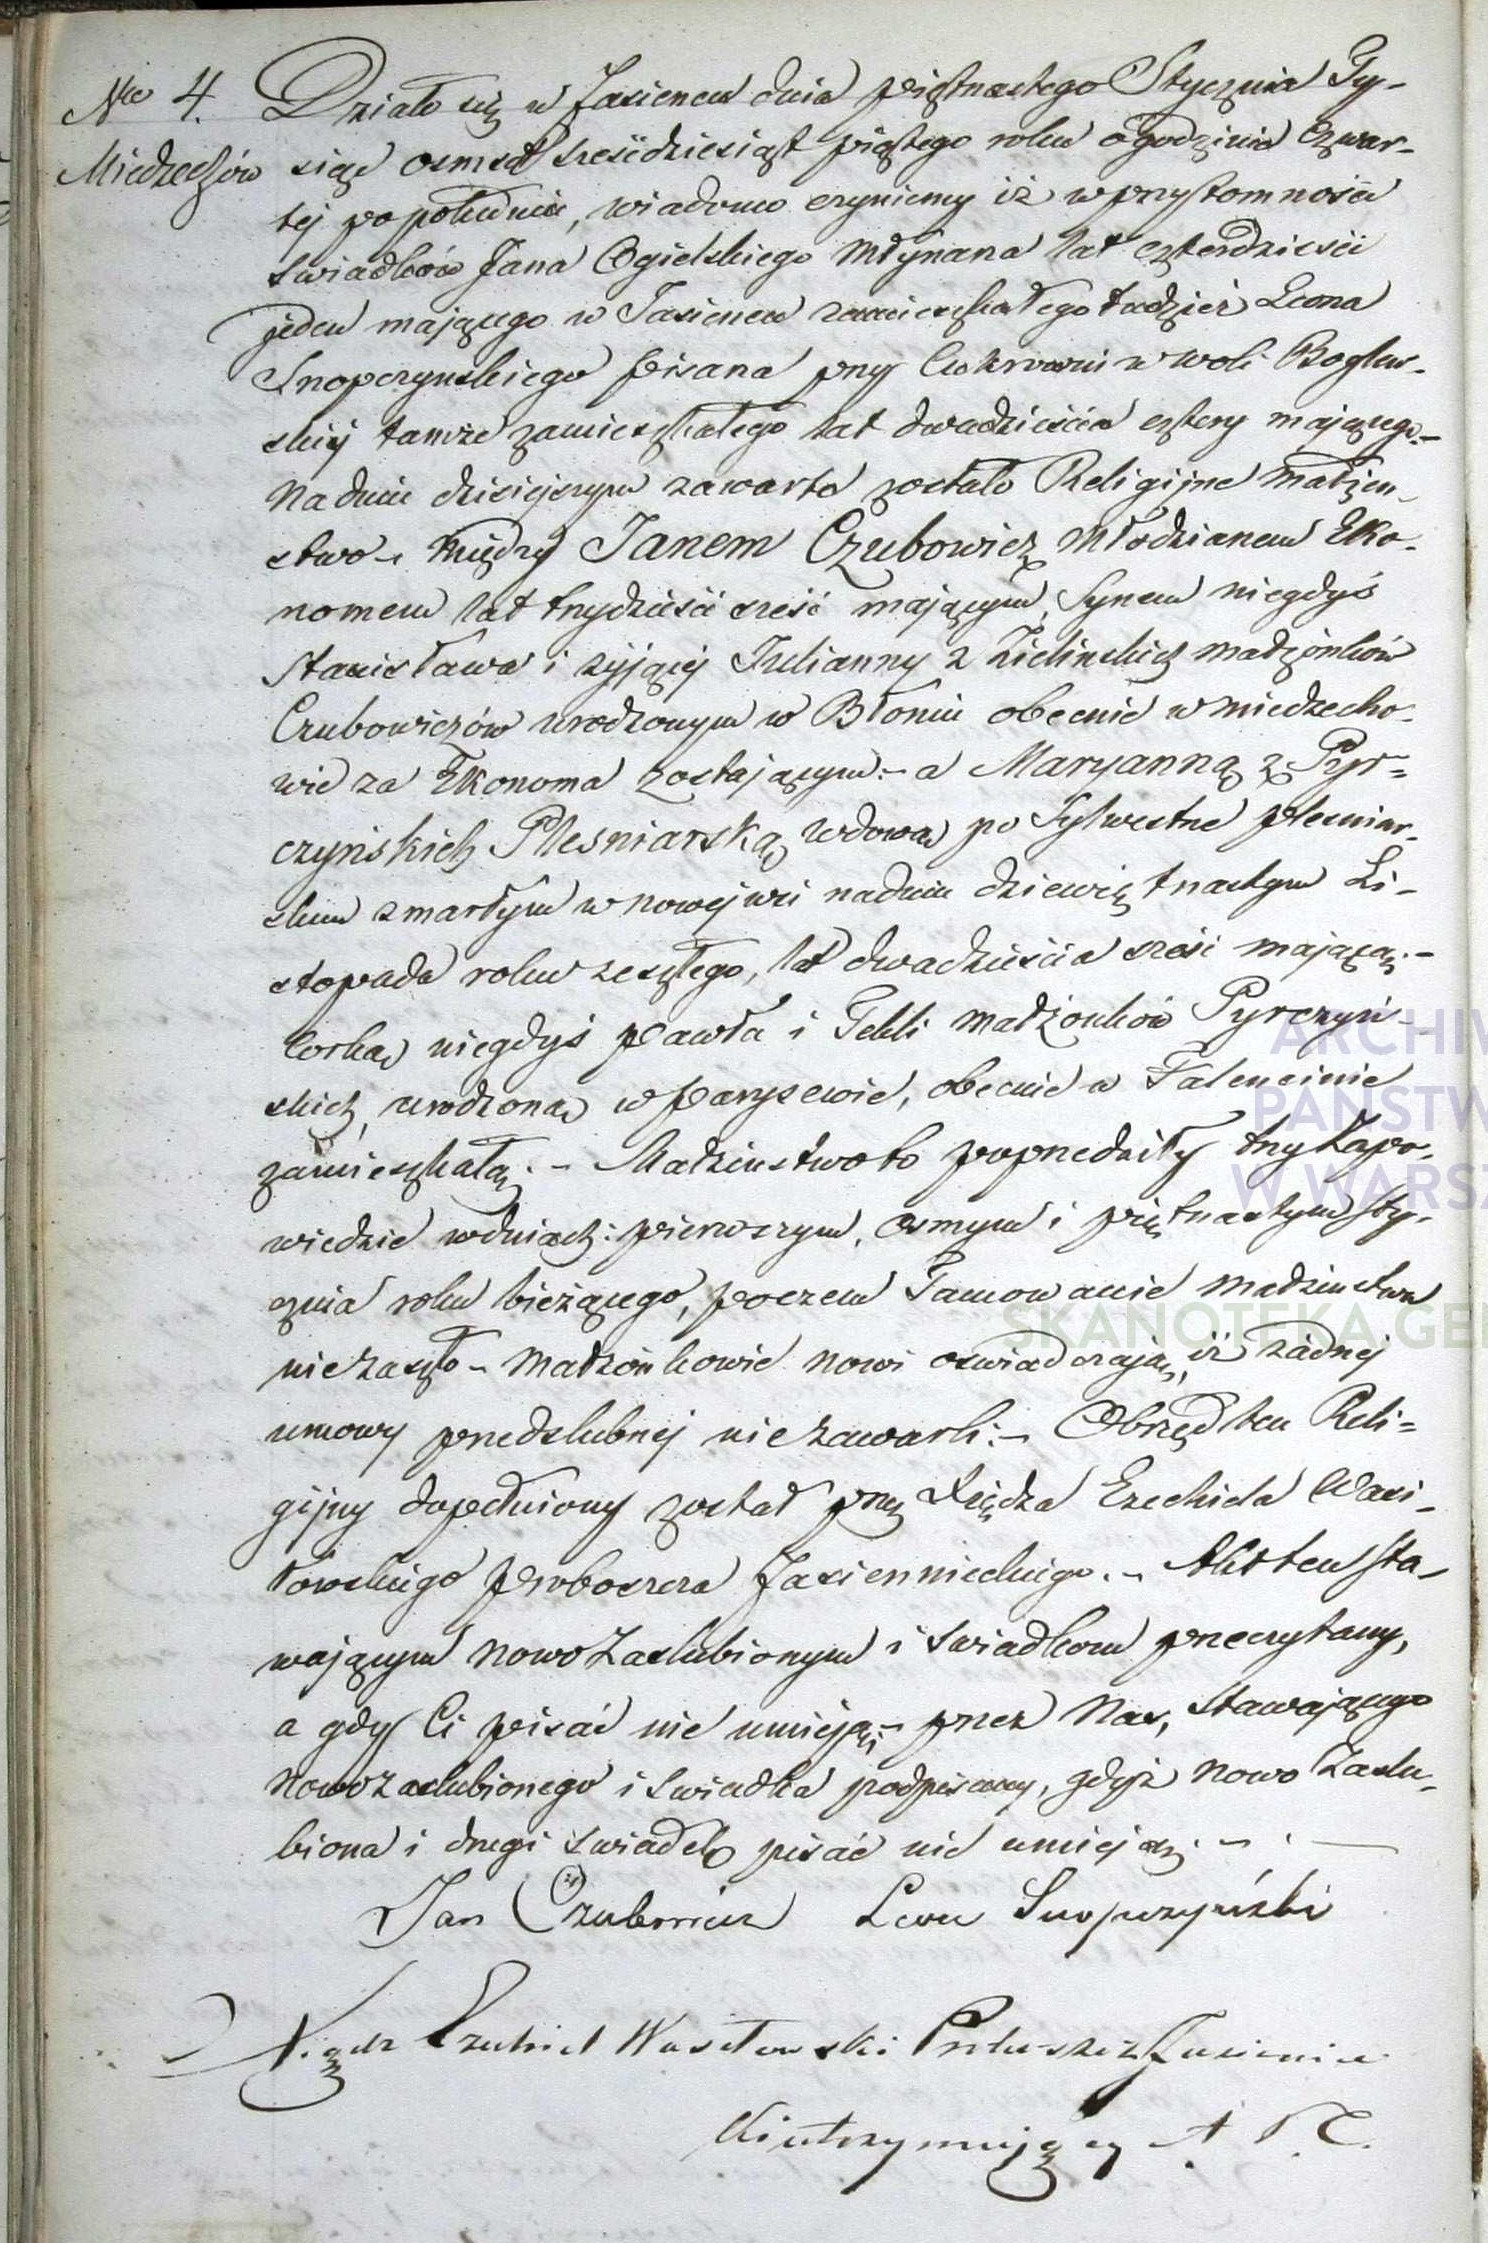 Nro 4.
Miedzechów
Działo się w Jasieńcu dnia piętnastego Stycznia Ty-
siąc osmset sześćdziesiąt piątego roku o godzinie Czwar-
tej popołudniu, wiadomo czyniemy iż w przytomności
Swiadków Jana Ogielskiego Młynarza lat czterdzieści
jeden mającego w Jasieńcu zamieszkałego tudzież Leona
Snopczynskiego pisarza przy Cukrowni w Woli Boglew-
skiej tamże zamieszkałego lat dwadzieścia cztery mającego.–
Na dniu dzisiejszym zawarte zostało Religijne małżeń-
stwo – między Janem Czubowicz Młodzianem Eko-
nomem lat trzydzieści sześć mającym, Synem niegdyś
Stanisława i żyjącej Julianny z Zielinskich małżonków
Czubowiczów urodzonym w Błoniu obecnie w miedzecho-
wie za Ekonoma zostającym:– a Maryanną z Pyr=
czyńskich Plesniarską, wdową po Sylwestrze plesniar-
skim zmarłym w nowejwsi na dniu dziewiętnastym Li-
stopada roku zeszłego, lat dwadzieścia sześć mającą.–
Corką niegdyś Pawła i Tekli małżonków Pyrczyń-
skich, urodzoną w Parysewie, obecnie w Falencinie
zamieszkałą. – Małżeństwo to poprzedziły trzy Zapo-
wiedzie w dniach: pierwszym, osmym i piętnastym Sty-
cznia roku bieżącego, poczem Tamowanie małżeństwa
nie zaszło – Małżonkowie nowi oswiadczają, iż żadnej
umowy przedslubnej nie zawarli:– Obrzęd ten Reli=
gijny dopełniony został przez Xiędza Ezechiela Wasi-
łowskiego Proboszcza Jasiennieckiego. – Akt ten Sta-
wającym Nowo Zaslubionym i Swiadkom przeczytany,
a gdy Ci pisać nie umieją – przez Nas, Stawającego
Nowozaslubionego i Swiadka podpisany, gdyż Nowo Zaslu-
biona i drugi Swiadek pisać nie umieją. –
Jan Czubowicz Leon Snopczyński
Xiądz Ezechiel Wasiłowski Proboszcz Jasienie
cki utrzymujący A. S. C.
ARCHIW
PAŃSTW
W WARSZ
SKANOTEKA GEN